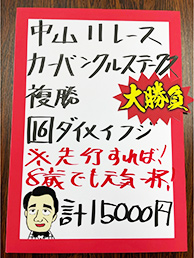 中山11レース
カーバンクルステークス
複勝
大勝負
16 ダイメイフジ
※先行すれば!
8歳でも元気一杯!
計15000円